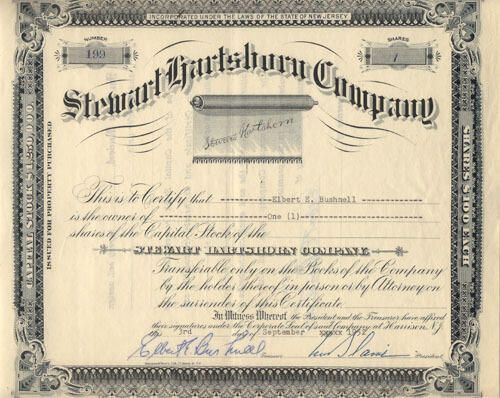 INCORPORATED UNDER THE LAWS OF THE STATE OF NEW JERSEY
NUMBER
199
SHARES
1
Stewart Hartshorn Company
Stewart Hartshorn
ISSUED FOR PROPERTY PURCHASED
SHARES $100 EACH
This is to Certify that Elbert E. Bushnell
is the owner of One (1)
shares of the Capital Stock of the
STEWART HARTSHORN COMPANY
Transferable only on the Books of the Company
by the holder thereof in person or by Attorney on
the surrender of this Certificate.
In Witness Whereof, the President and the Treasurer have affixed
their signatures under the Corporate Seal of said Company at Harrison, N.J.
this 3rd day of September xxxxx 1952
Elbert E. Bushnell
Treasurer
President